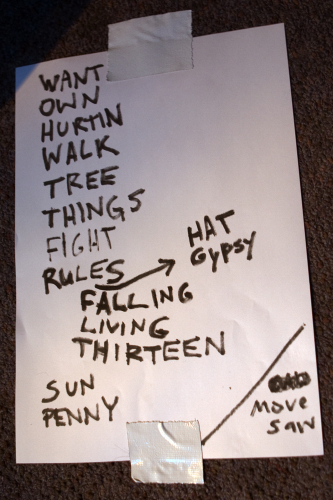 WANT
OWN
HURTIN
WALK
TREE
THINGS
FIGHT
RULES
HAT
GYPSY
FALLING
LIVING
THIRTEEN
SUN
PENNY
MOVE
SAW